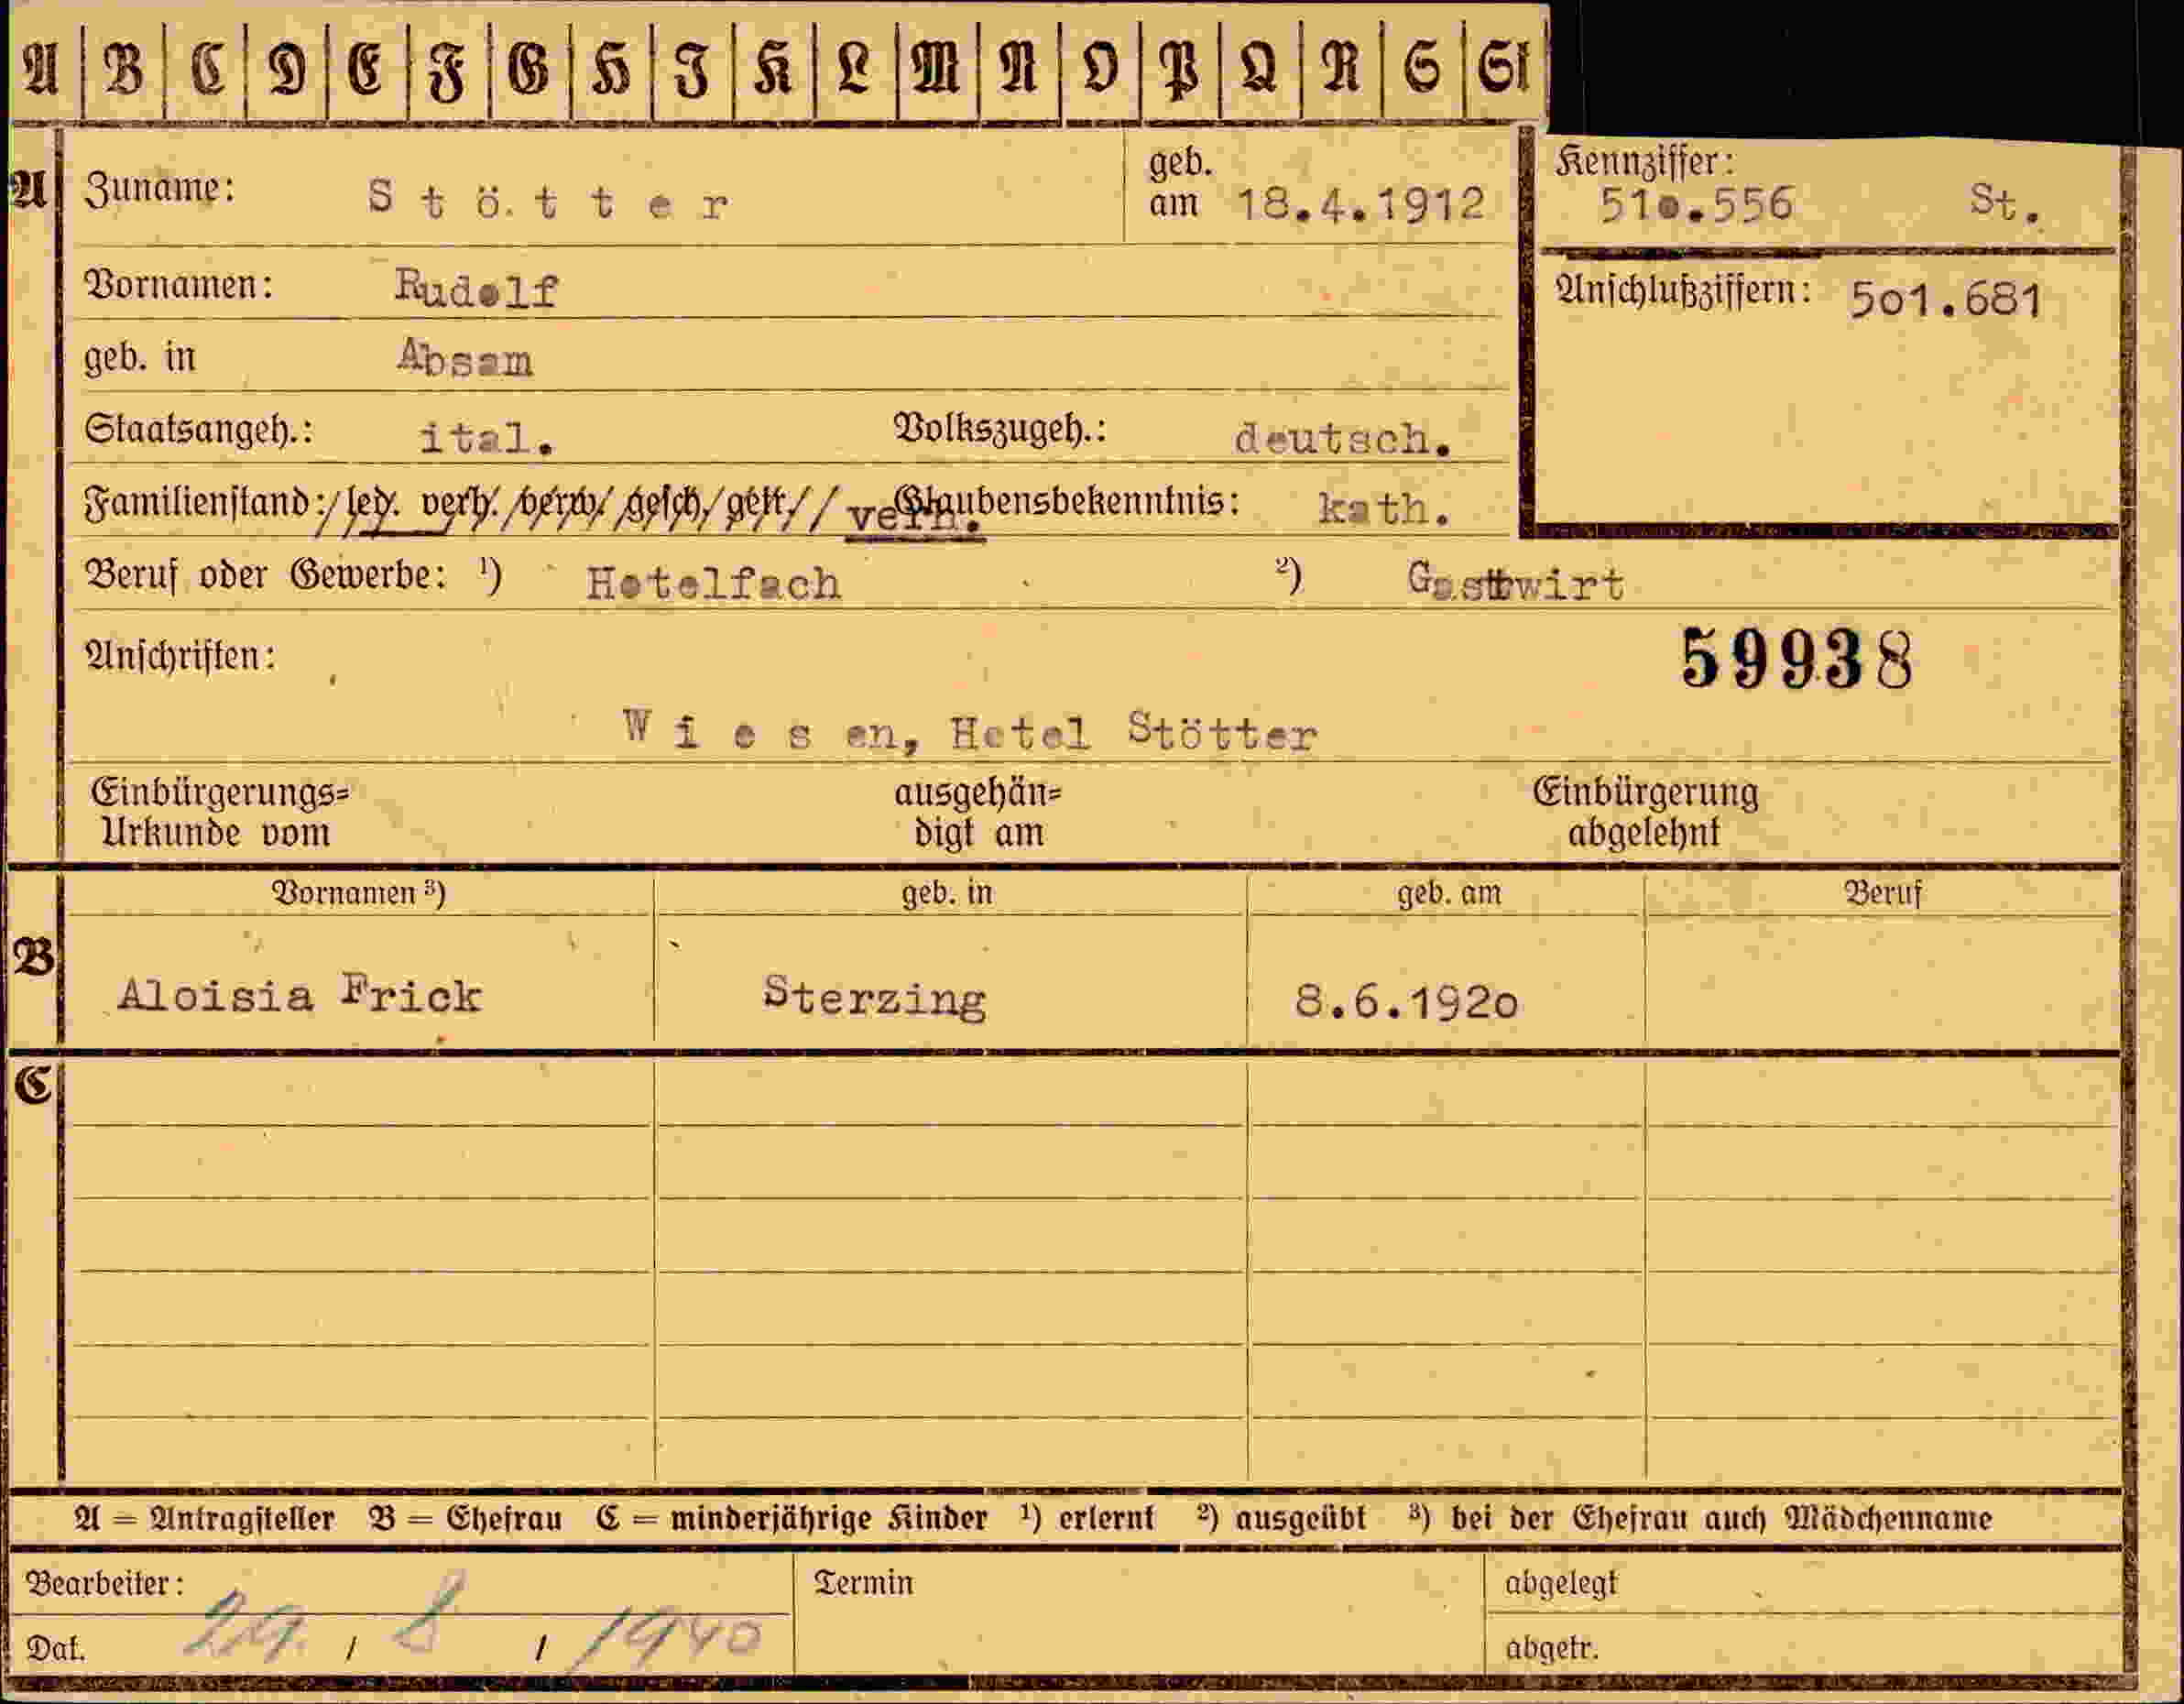 A B C D E F G H I K L M N O P Q R S St
A Zuname: Stötter geb. am 18.4.1912
Kennziffer: 510.556 St.
Vornamen: Rudolf
Anschlußziffern: 5o1.681
geb. in Absam
Staatsangeh.: ital. Volkszugeh.: deutsch.
Familienstand: led. verh. verw. gesch. getr. verh. Glaubensbekenntnis: kath.
Beruf oder Gewerbe: ¹) Hotelfach ²) Gastwirt
Anschriften: 59938
Wiesen, Hotel Stötter
Einbürgerungs= ausgehän= Einbürgerung
Urkunde vom digt am abgelehnt
Vornamen ³) geb. in geb. am Beruf
B Aloisia Frick Sterzing 8.6.192o
C
A = Antragsteller B = Ehefrau C = minderjährige Kinder ¹) erlernt ²) ausgeübt ³) bei der Ehefrau auch Mädchenname
Bearbeiter: Termin abgelegt
Dat. 29. / 8 / 1940 abgetr.